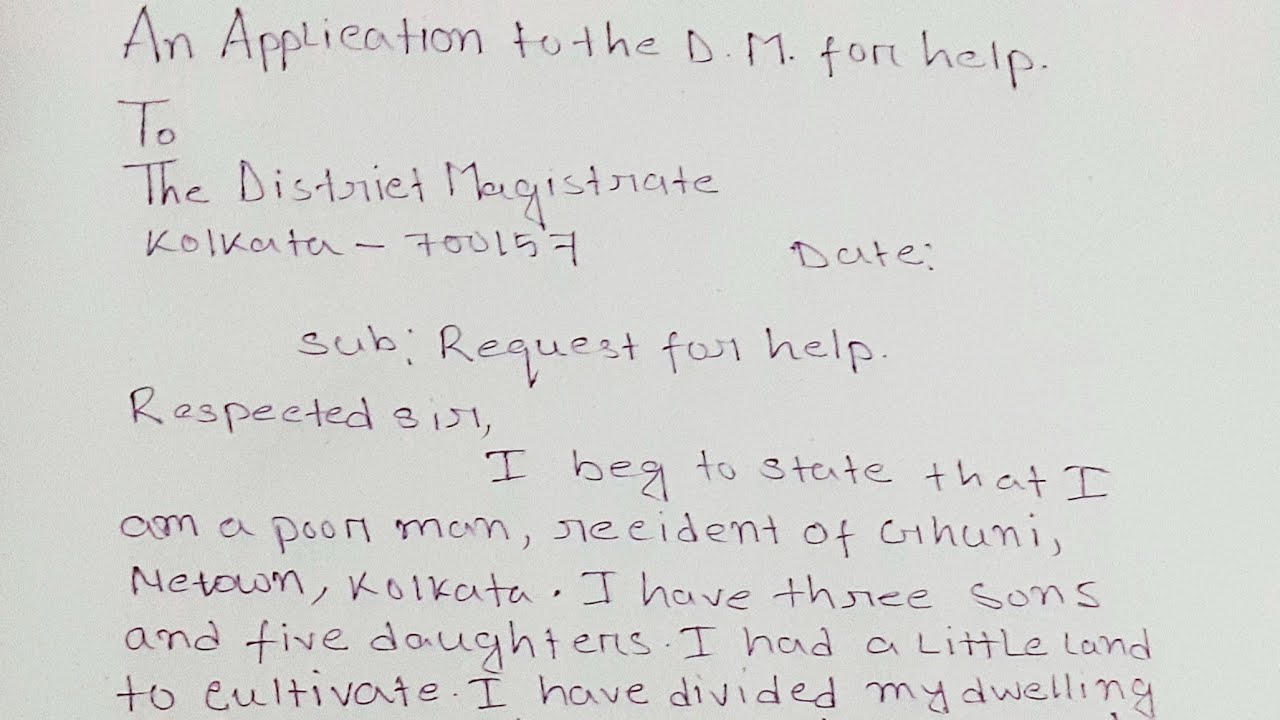 An Application to the D.M. for help.
To
The District Magistrate
Kolkata - 700157 Date:
Sub: Request for help.
Respected sir,
I beg to state that I
am a poor man, recident of Ghuni,
Netown, Kolkata. I have three sons
and five daughters. I had a little land
to cultivate. I have divided my dwelling